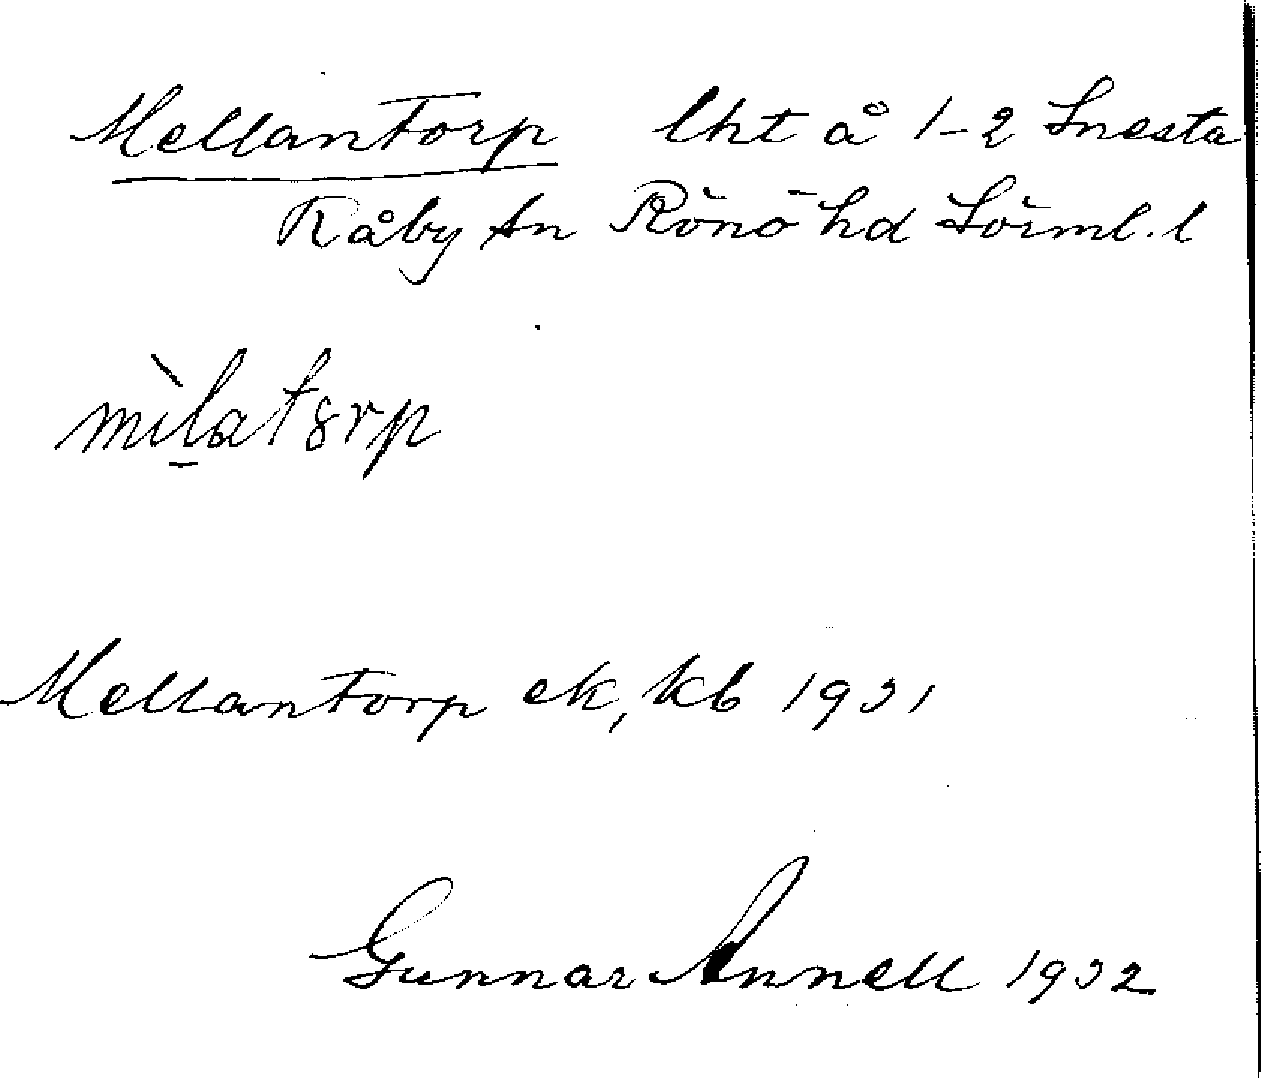 Mellantorp lht å 1-2 Snesta
Råby sn Rönö hd Sörml. l
mìl̠at8rp
Mellantorp ek, kb 1931
Gunnar Annell 1932